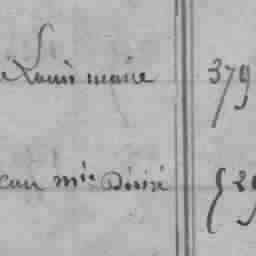 e Louis marie 379
ean mie Désiré { 29